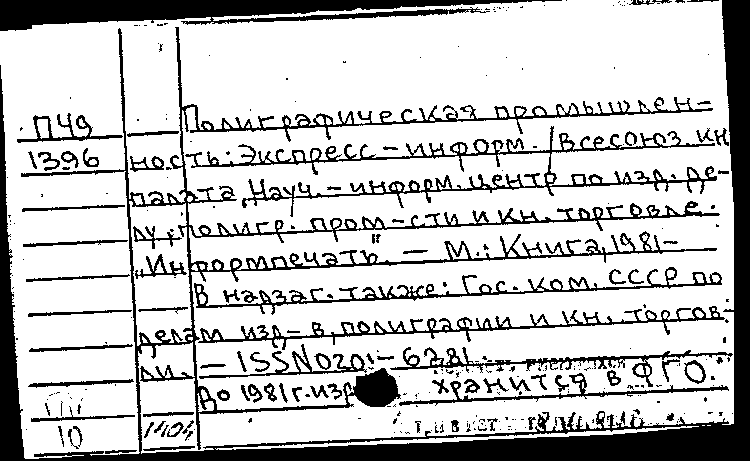 П49
1396
Полиграфическая промышлен-
ность: Экспресс-информ. / Всесоюз. кн
палата, Науч.-информ. центр по изд. де-
лу, полигр. пром-сти и кн. торговле.
„Информпечать". - М.: Книга, 1981-
В надзаг. также: Гос. ком. СССР по
делам изд-в, полиграфии и кн. торгов-
ли. - ISSN0201-6281.
До 1981 г. изд
хранится в ФГО.
10
1404